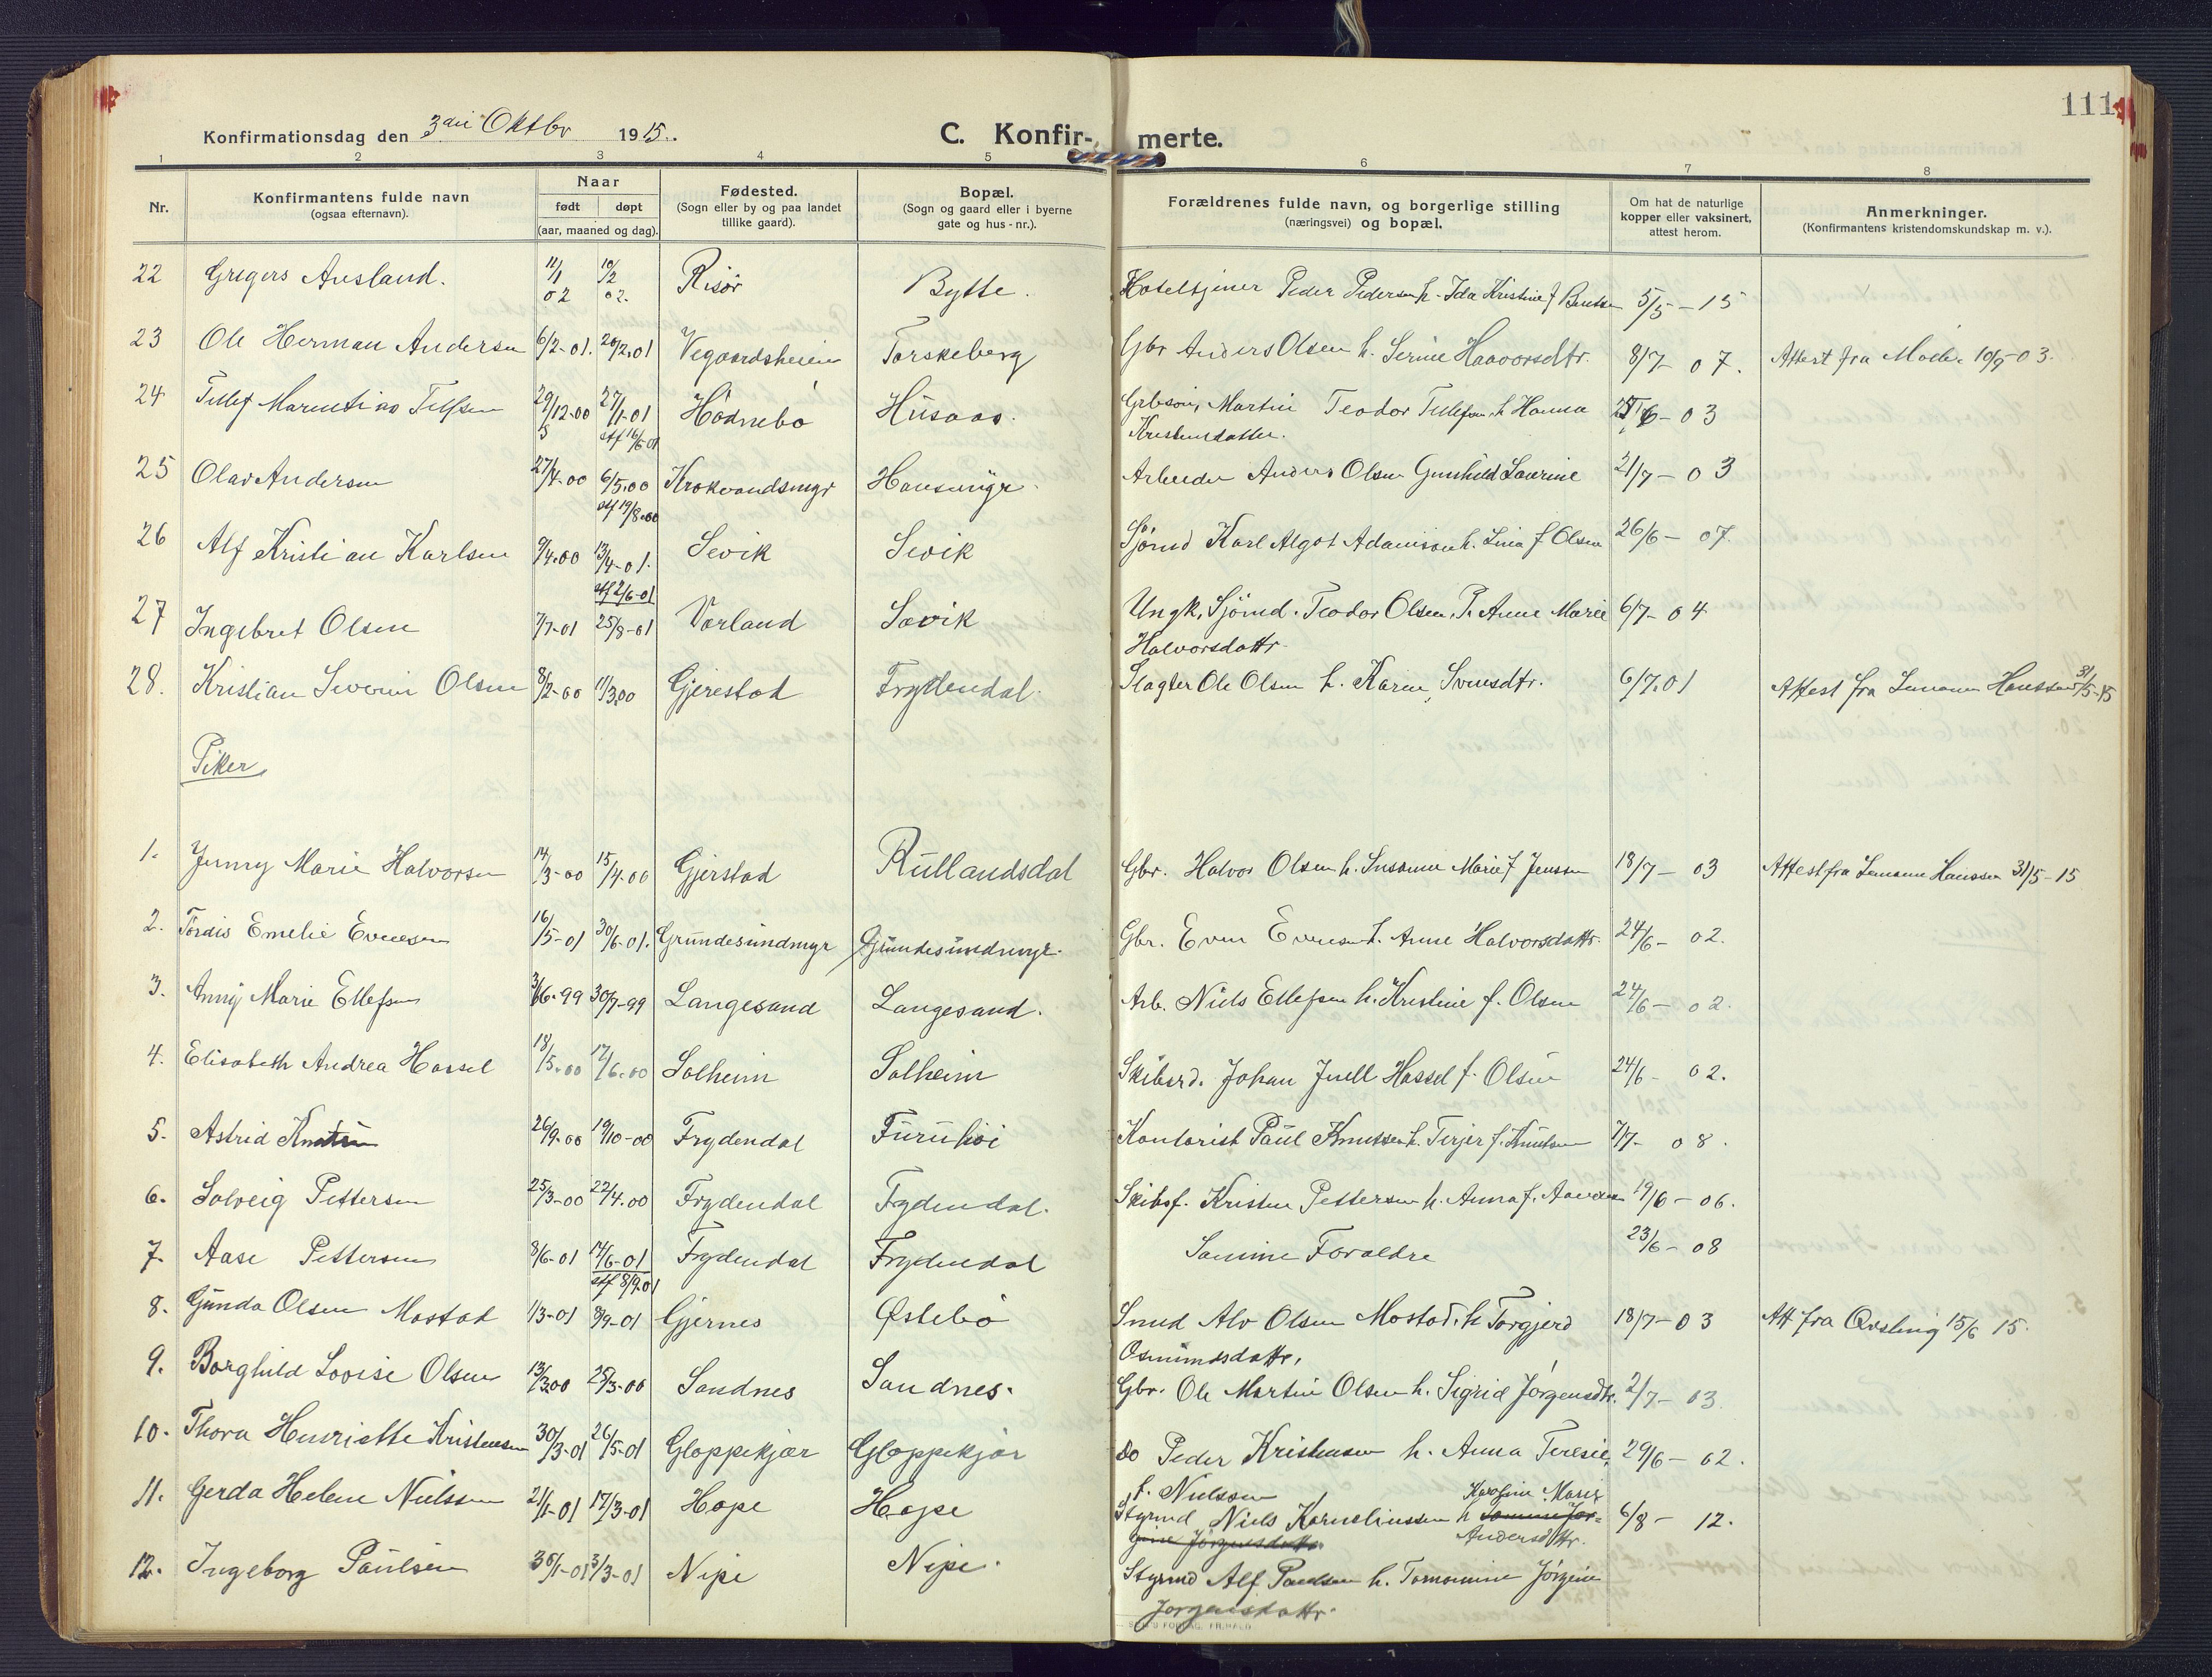 111
Konfirmationsdag den 3die Oktbr 1915.
C. Konfir- merte.
1 2 3 4 5 6 7 8
Nr.
Konfirmantens fulde navn
(ogsaa efternavn).
Naar
født døpt
(aar, maaned og dag).
Fødested.
(Sogn eller by og paa landet
tillike gaard).
Bopæl.
(Sogn og gaard eller i byerne
gate og hus-nr.).
Forældrenes fulde navn, og borgerlige stilling
(næringsvei) og bopæl.
Om hat de naturlige
kopper eller vaksinert,
attest herom.
Anmerkninger.
(Konfirmantens kristendomskundskap m. v.).
22 Gregers Ausland. 11/1 02 10/2 02. Risør Bytte. Hoteltjener Peder Pedersen h. Ida Kristine f 5/5-15
23 Ole Herman Andersen 6/2-01. 20/2.01 Vegaardsheien Torskeberg Gbr Anders Olsen h. Serine Haavorsdtr. 8/7-07. Attest fra 10/9-03.
24 Tellef 29/12-00 27/1-01 stf 16/6-01 Hödnebö Husaas. Martin Teodor Tellefsen h. Hanna 6-03
Kristensdatter.
25 Olav Andersen 27/4-00 6/5.00 stf 19/8.00 Krokvandsmyr Hansmyr Arbeider Anders Olsen Gunhild Laurine 21/7-03
26 Alf Kristian Karlsen 9/4.00 13/4-01. stf 2/6-01 Sevik Sevik Sjömd Karl Algot Adamson h. Lina f Olsen 26/6-07.
27 Ingebret Olsen 7/7-01 25/8-01 Vorland Sævik Ungk, Sjömd. Teodor Olsen, P. Anne Marie 6/7-04
Halvorsdattr.
28. Kristian Severin Olsen 8/2-00 11/3.00 Gjerestad Frydendal. Slagter Ole Olsen h. Karen Svensdtr. 6/7.01 Attest fra Hanssen 31/5-15
Piker
1. Jenny Marie Halvorsen 14/3-00 15/4.00 Gjerstad Rullandsdal Gbr. Halvor Olsen h. Susanne Marie f Jenssen 18/7-03 Attest fra Hanssen 31/5-15
2. Tordis Emelie Evensen 16/5-01 30/6-01. Grundesundmyr Grundesundmyr. Gbr. Even Evensen h. Anne Halvorsdattr. 24/6-02.
3. Anny Marie Ellefsen 3/6-99 30/7-99 Langesand Langesand. Arb. Niels Ellefsen h. Kristine f. Olsen 24/6-02.
4. Elisabeth Andrea Hassel 18/5.00 17/6.00 Solheim Solheim Johan Juell Hassel f. Olsen 24/6-02.
5. Astrid 26/9.00 19/10-00 Frydendal Furuhöi Kontorist Paul Knutsen h. Terjer f. Knutsen 7/7-08.
6. Solveig Pettersen 25/3-00 22/4.00 Frydendal Fydendal. Skibsf. Kristen Pettersen h. Anna f. 19/6-06.
7. Aase Pettersen 8/6-01 14/6-01 stf 8/9.01 Frydendal Frydendal Samme Forældre 23/6-08
8. Gunda Olsen Mostad 1/3-01 8/9-01 Gjernes Østebö Smed Alv Olsen Mostad, h Torgjerd 18/7-03 Att fra Qvisling 15/6 15.
Osmundsdattr,
9. Borghild Lovise Olsen 13/3.00 25/3-00 Sandnes Sandnes. Gbr. Ole Martin Olsen h. Sigrid Jörgensdtr. 2/7-03.
10. Thora Henriette Kristensen 30/3-01 26/5-01 Gloppekjær Gloppekjær Do Peder Kristensen h. Anna Teresie, 29/6-02.
f. Nielssen
11. Gerda Helene Nielssen 21/1-01 17/3-01 Hope Hope Styrmd Niels Korneliussen h Karoline Marie Andersdttr. 6/8-12.
12. Ingeborg Paulsen 30/1-01 3/3-01 Nipe Nipe. Styrmd Alf Paulsen h. Tomomine Jörgine
Jörgensdattr.